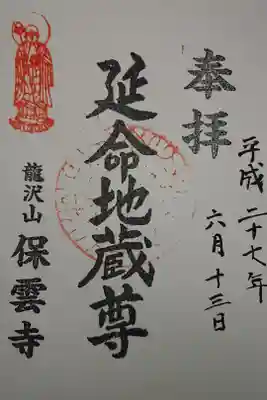 奉拝
平成二十七年
六月十三日
延命地蔵尊
龍沢山
保雲寺